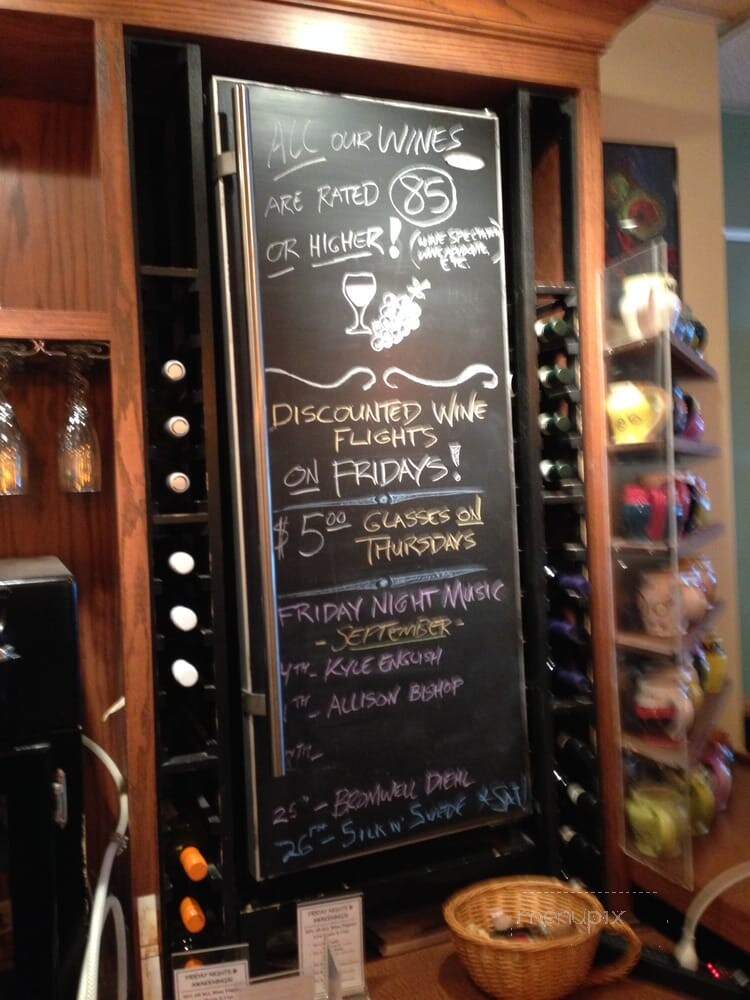 ALL OUR WINES
ARE RATED 85
OR HIGHER! (WINE SPECTATOR,
WINE ADVOCATE,
ETC.
DISCOUNTED WINE
FLIGHTS
ON FRIDAYS!
$5.00 GLASSES ON
THURSDAYS
FRIDAY NIGHT MUSIC
- SEPTEMBER -
4TH - KYLE ENGLISH
TH - ALLISON BISHOP
TH -
25TH - BROMWELL DIEHL
26TH - SILK N' SUEDE *SAT!
FRIDAY NIGHTS @
FRIDAY NIGHTS @
menupix